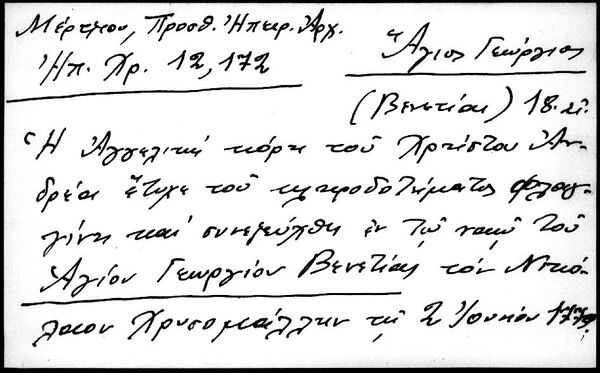 Μέρτζιου, Προσθ. Ἠπειρ. Ἀρχ.
Ἠπ. Χρ. 12, 172
Ἅγιος Γεώργιος
(Βενετίας) 18. αἰ.
Ἡ Ἀγγελικὴ κόρη τοῦ Χρήστου Ἀν-
δρέα ἔτυχε τοῦ κληροδοτήματος Φλαγ-
γίνη καὶ συνεζεύχθη ἐν τῷ ναῷ τοῦ
Ἁγίου Γεωργίου Βενετίας τόν Νικό-
λαον Χρυσομάλλην τῇ 2 Ἰουνίου